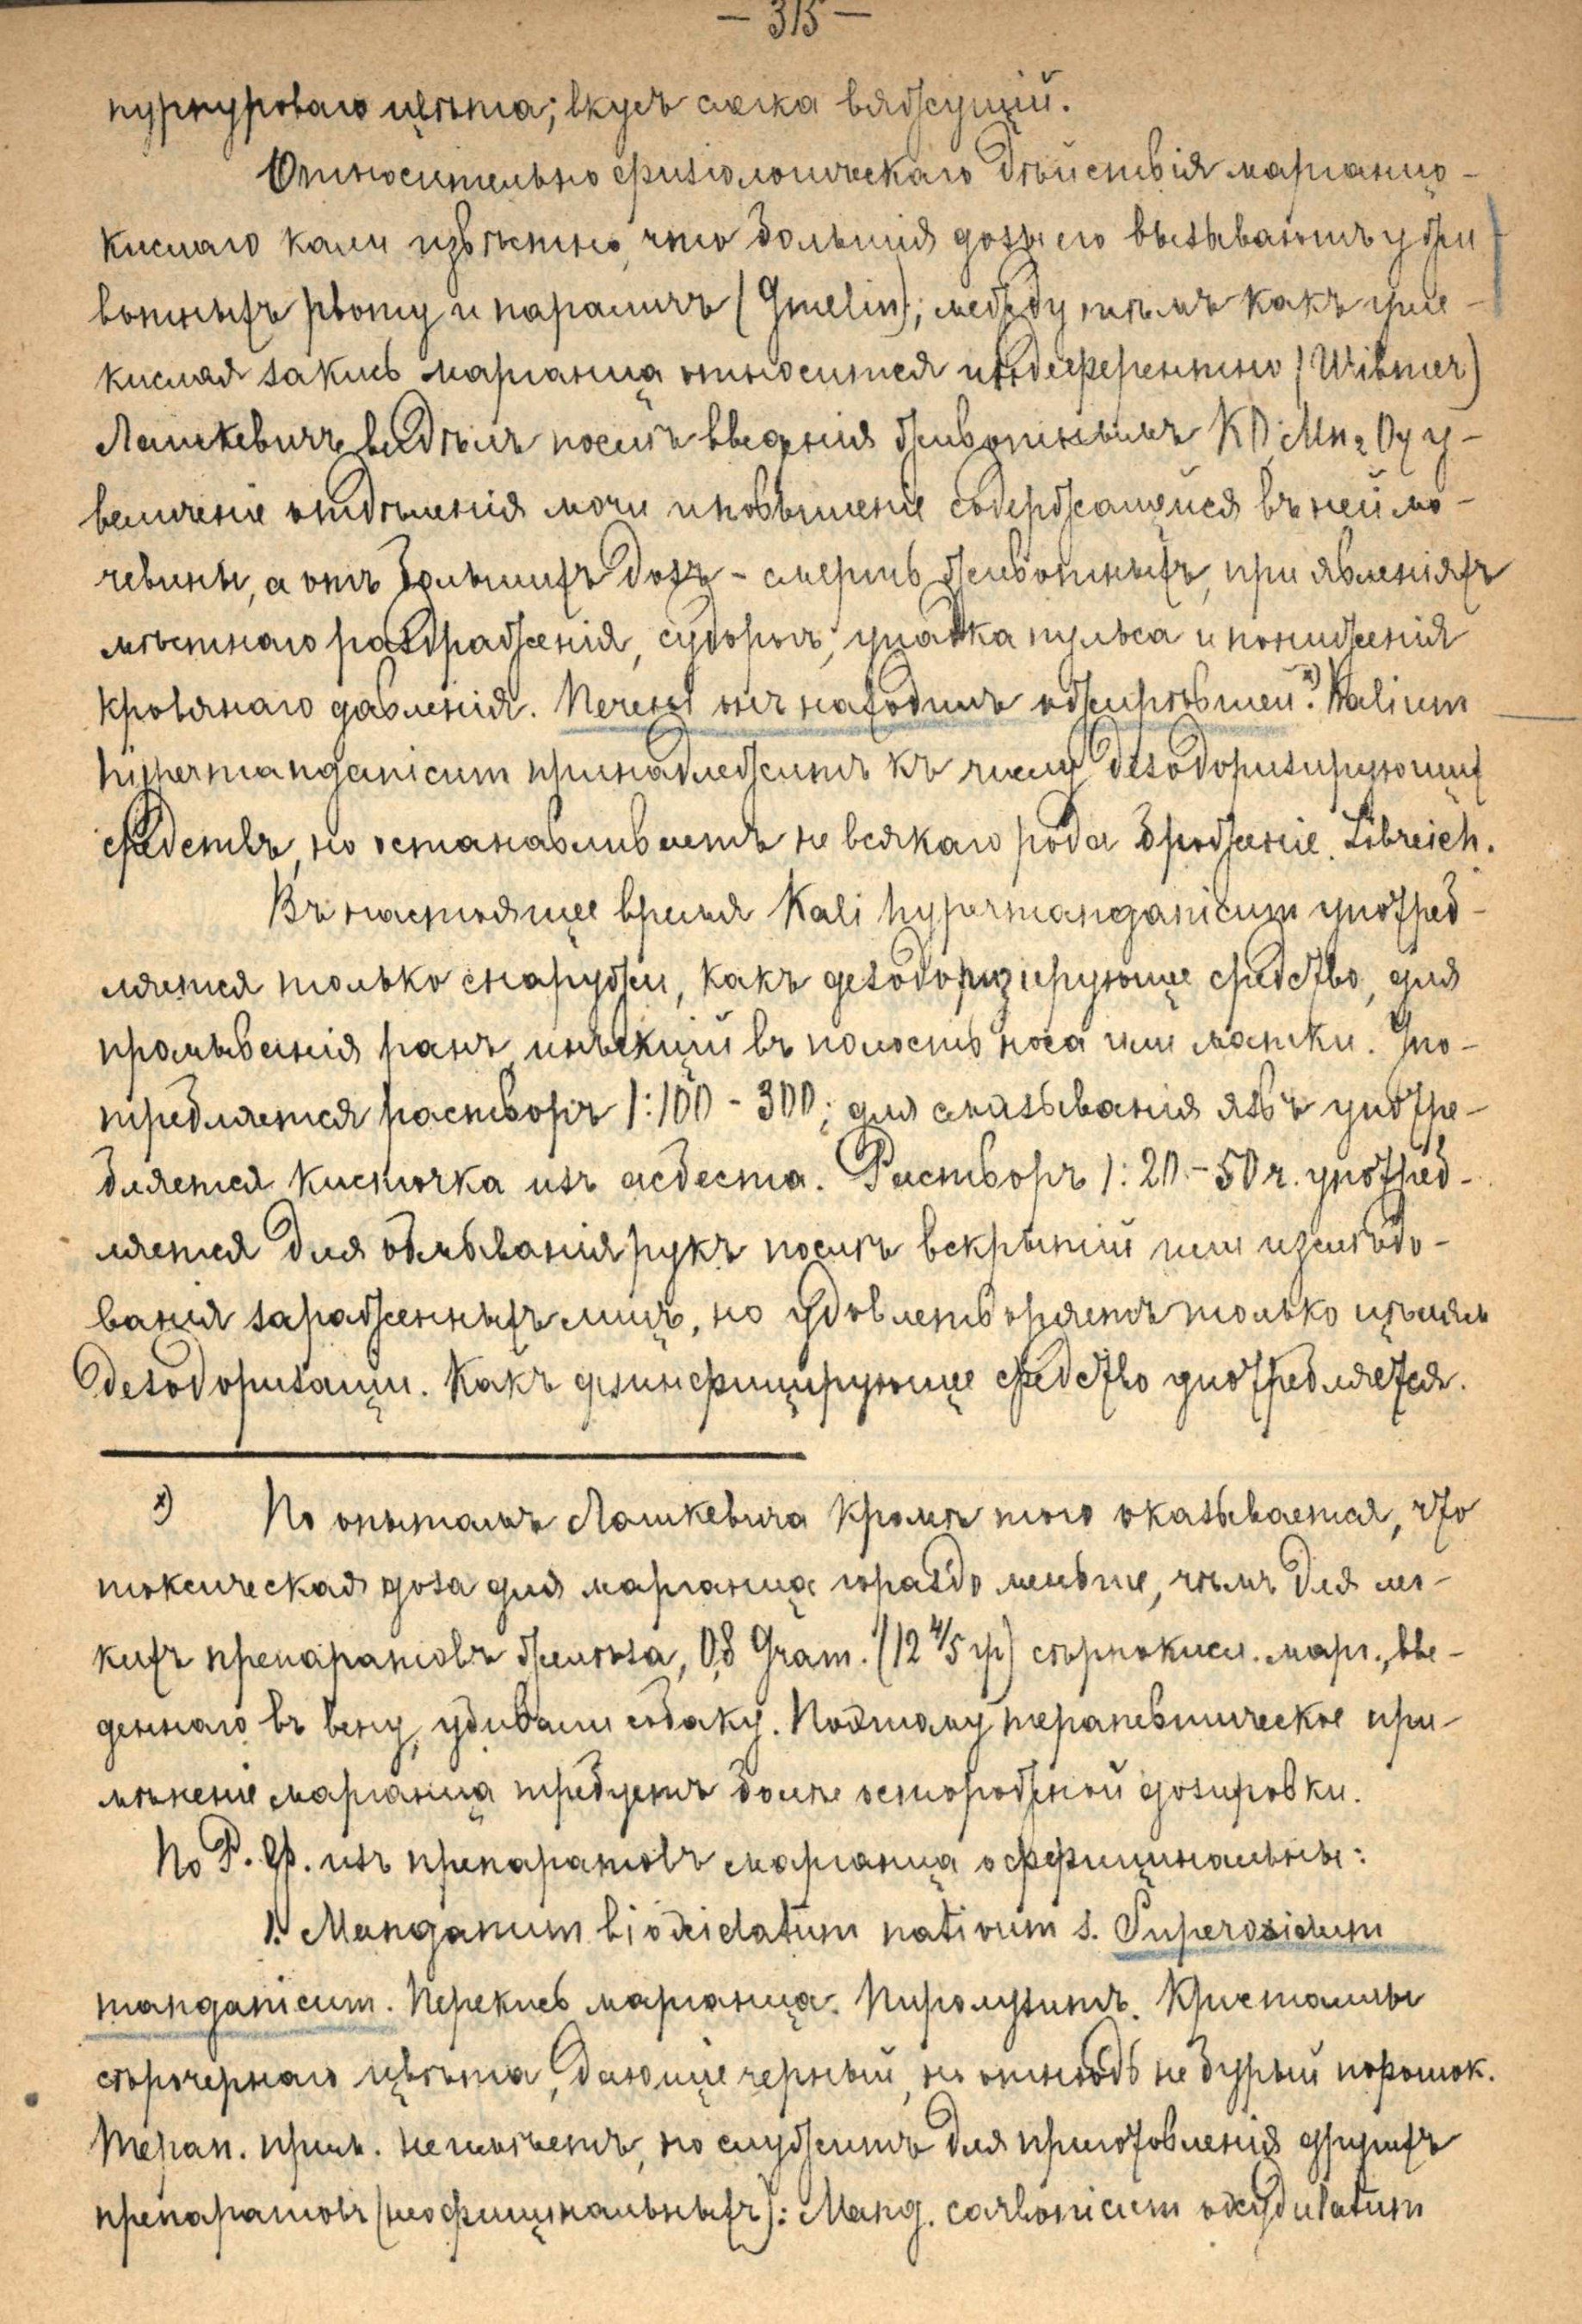 — 315 —
пурпуроваго цвѣта; вкусъ слегка вяжущій.
Относительно физіологическаго дѣйствія марганцо-
кислаго кали извѣстно, что большія дозы его вызываютъ у жи
вотныхъ рвоту и параличъ (Gmelin); между тѣмъ какъ угле-
кислая закись марганца относится индеферентно (Wibmer)
Лашкевичъ видѣлъ послѣ введенія животнымъ KO, Mn2 O7 у-
величеніе отдѣленія мочи и повышеніе содержащейся въ ней мо-
чевины, а отъ большихъ дозъ - смерть животныхъ, при явленіяхъ
мѣстнаго раздраженія, судорогъ, упадка пульса и пониженія
кровянаго давленія. Печень онъ находилъ ожирѣвшей.ˣ⁾ Kalium
hypermanganicum принадлежитъ къ числу дезодоризирующих
средствъ, но останавливаетъ не всякаго рода броженіе. Libreich.
Въ настоящее время Kali hypermanganicum употреб-
ляется только снаружи, какъ дезодоризирующее средство, для
промыванія ранъ, инъекцій въ полость носа или матки. Упо-
требляется растворъ 1:100 - 300; для смазыванія язвъ употре-
бляется кисточка изъ асбеста. Растворъ 1: 20 - 50 ч. употреб-
ляется для обмыванія рукъ послѣ вскрытій или изслѣдо-
ванія зараженныхъ лицъ, но удовлетворяетъ только цѣлямъ
дезодоризаціи. Какъ дезинфицирующее средство употребляется.
ˣ⁾ По опытамъ Лашкевича кромѣ того оказывается, что
токсическая доза для марганца гораздо меньше, чѣмъ для лег-
кихъ препаратовъ желѣза, 0,8 Gram. (12 4/5 гр) сѣрнокисл. марг., вве-
деннаго въ вену, убивали собаку. Поэтому терапевтическое при-
мѣненіе марганца требуетъ болѣе осторожной дозировки.
По Р. Ф. изъ препаратовъ марганца оффицинальны:
1. Manganum bioxidatum nativum s. Superoxidum
manganicum. Перекись марганца. Пиролузитъ. Кристаллы
сѣрочернаго цвѣта, дающіе черный, но отнюдь не бурый порошок.
Терап. прим. не имѣетъ, но служитъ для приготовленія другихъ
препаратовъ (неофицинальныхъ): Mang. carbonicum oxydulatum